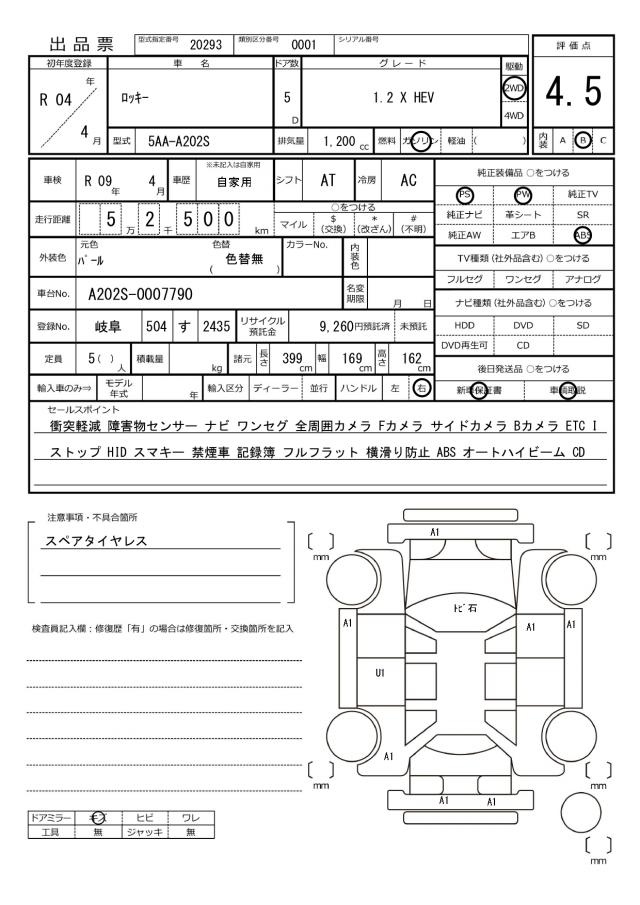 出品票 型式指定番号 20293 類別区分番号 0001 シリアル番号
評価点
4.5
初年度登録 車名 ドア数 グレード 駆動
R 04 年 4 月 ロッキー 5 D 1.2 X HEV 2WD 4WD
型式 5AA-A202S 排気量 1,200 cc 燃料 ガソリン 軽油 ( ) 内装 A B C
車検 R 09 年 4 月 車歴 ※未記入は自家用 自家用 シフト AT 冷房 AC
走行距離 5 万 2 千 5 0 0 km ○をつける マイル $ (交換) * (改ざん) # (不明)
外装色 元色 パール 色替 ( 色替無 ) カラーNo. 内装色
車台No. A202S-0007790 名変期限 月 日
登録No. 岐阜 504 す 2435 リサイクル預託金 9,260円預託済 未預託
定員 5 ( ) 人 積載量 kg 諸元 長さ 399 cm 幅 169 cm 高さ 162 cm
輸入車のみ⇒ モデル年式 年 輸入区分 ディーラー 並行 ハンドル 左 右
純正装備品 ○をつける
PS PW 純正TV
純正ナビ 革シート SR
純正AW エアB ABS
TV種類 (社外品含む) ○をつける
フルセグ ワンセグ アナログ
ナビ種類 (社外品含む) ○をつける
HDD DVD SD
DVD再生可 CD
後日発送品 ○をつける
新車保証書 車輌取説
セールスポイント
衝突軽減 障害物センサー ナビ ワンセグ 全周囲カメラ Fカメラ サイドカメラ Bカメラ ETC I
ストップ HID スマキー 禁煙車 記録簿 フルフラット 横滑り防止 ABS オートハイビーム CD
注意事項・不具合箇所
スペアタイヤレス
検査員記入欄：修復歴「有」の場合は修復箇所・交換箇所を記入
ドアミラー キズ ヒビ ワレ
工具 無 ジャッキ 無
A1
mm mm
トビ石
A1 A1 A1
U1
A1
mm mm
A1 A1
mm